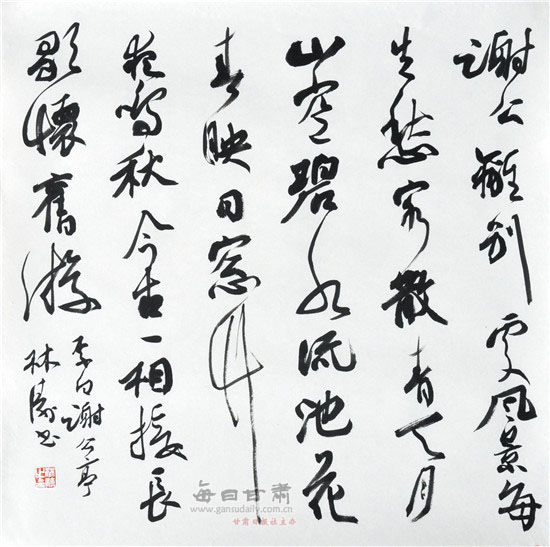 謝公離別處風景每
生愁客散青天月
山空碧水流池花
春映日窓竹
夜鸣秋今古一相接长
歌懷舊游
李白謝公亭
林书
每日甘肃
www.gansudaily.com.cn
甘肃日报社主办